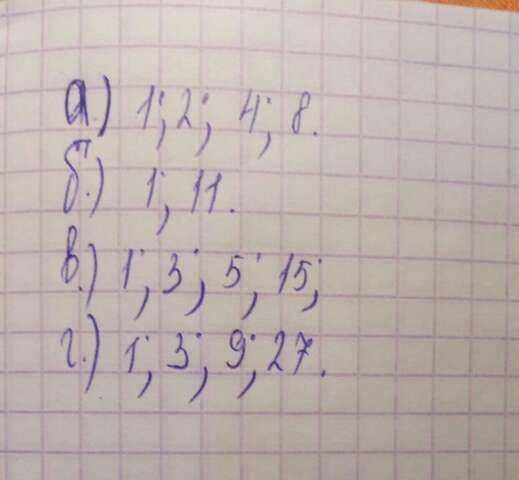 а.) 1; 2; 4; 8.
б.) 1; 11.
в.) 1; 3; 5; 15;
г.) 1; 3; 9; 27.